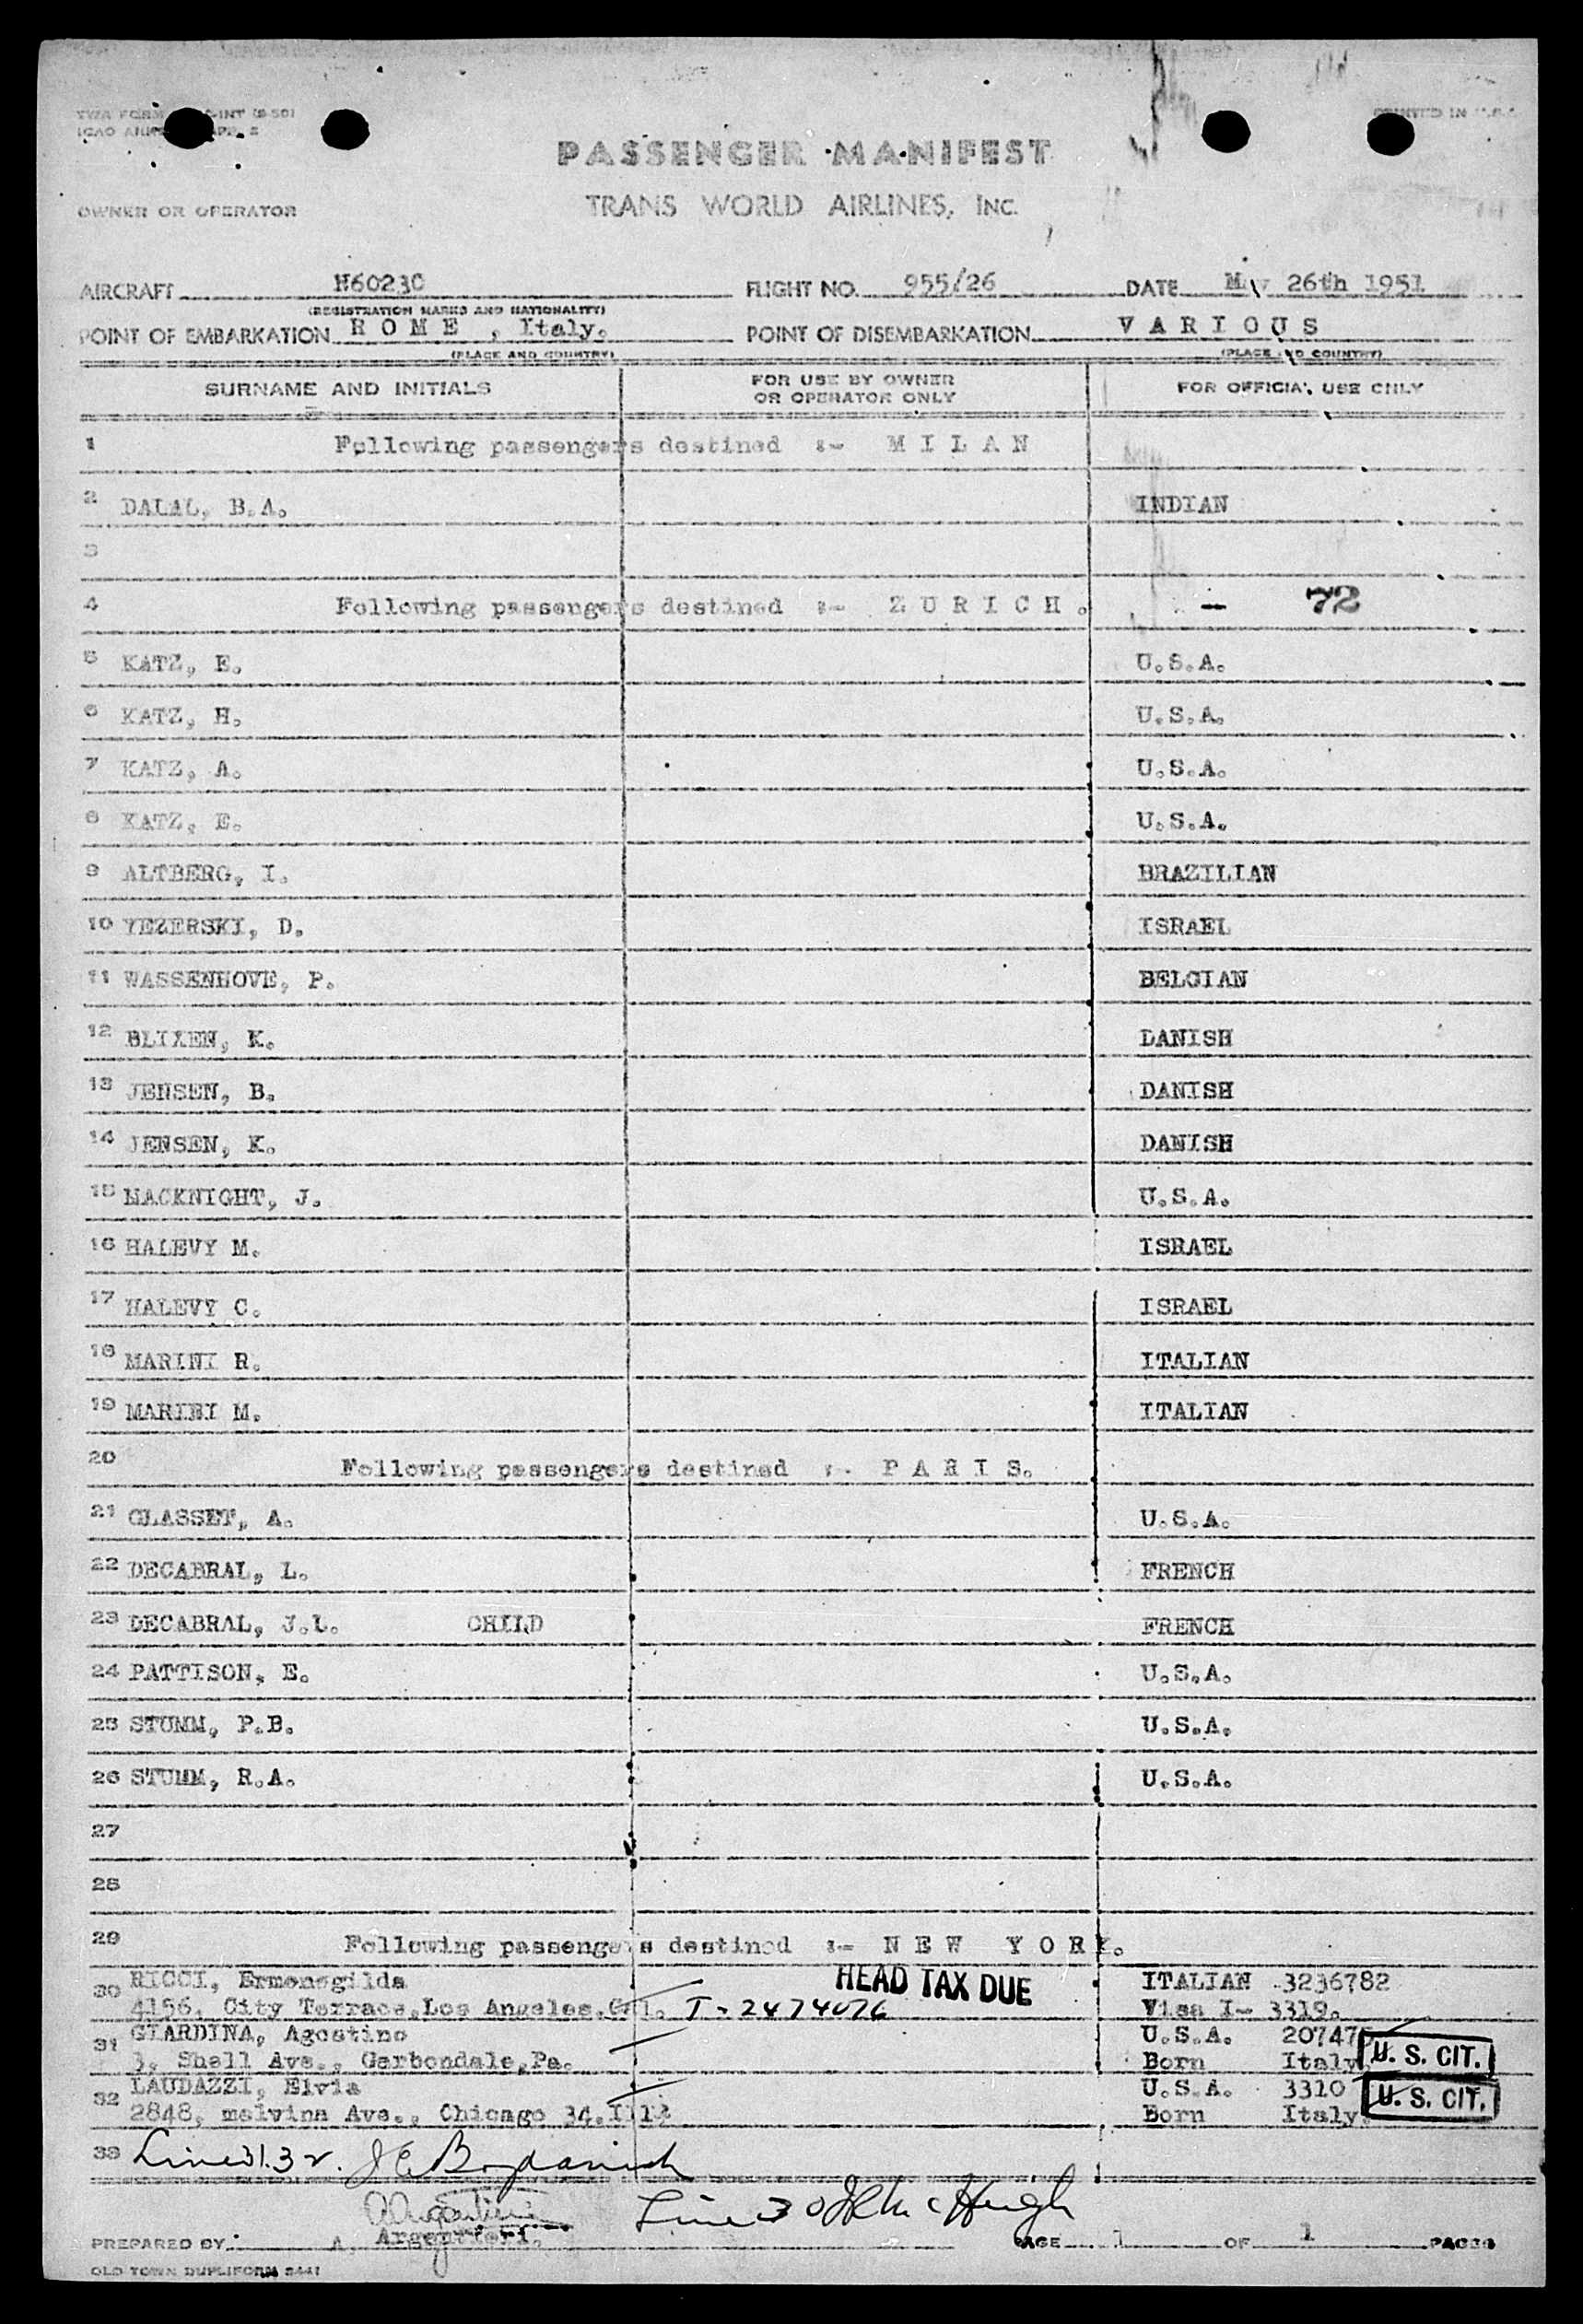 TWA FORM INT (8-50)
PRINTED IN U.S.A.
ICAO ANNEX APP. 5
PASSENGER MANIFEST
OWNER OR OPERATOR
TRANS WORLD AIRLINES, INC.
AIRCRAFT N6023C FLIGHT NO. 955/26 DATE May 26th 1951
(REGISTRATION MARKS AND NATIONALITY)
POINT OF EMBARKATION R O M E , Italy. POINT OF DISEMBARKATION V A R I O U S
(PLACE AND COUNTRY) (PLACE AND COUNTRY)
SURNAME AND INITIALS FOR USE BY OWNER OR OPERATOR ONLY FOR OFFICIAL USE ONLY
1 Following passengers destined :- M I L A N
2 DALAL, B.A. INDIAN
3
4 Following passengers destined :- Z U R I C H. - 72
5 KATZ, E. U.S.A.
6 KATZ, H. U.S.A.
7 KATZ, A. U.S.A.
8 KATZ, E. U.S.A.
9 ALTBERG, I. BRAZILIAN
10 YEZERSKI, D. ISRAEL
11 WASSENHOVE, P. BELGIAN
12 BLIXEN, K. DANISH
13 JENSEN, B. DANISH
14 JENSEN, K. DANISH
15 MACKNIGHT, J. U.S.A.
16 HALEVY M. ISRAEL
17 HALEVY C. ISRAEL
18 MARINI R. ITALIAN
19 MARINI M. ITALIAN
20 Following passengers destined :- P A R I S.
21 GLASSET, A. U.S.A.
22 DECABRAL, L. FRENCH
23 DECABRAL, J.L. CHILD FRENCH
24 PATTISON, E. U.S.A.
25 STUMM, P.B. U.S.A.
26 STUMM, R.A. U.S.A.
27
28
29 Following passengers destined :- N E W Y O R K.
30 RICCI, Ermenegilda HEAD TAX DUE ITALIAN 3236782
4156, City Terrace, Los Angeles, Cal. T-2474076 Visa I- 3319.
31 GIARDINA, Agostino U.S.A. 207475
3, Shell Ave., Carbondale, Pa. Born Italy U. S. CIT.
32 LAUDAZZI, Elvia U.S.A. 3310
2848, melvina Ave., Chicago 34. Ill. Born Italy U. S. CIT.
33 Line 31.32.
Line 30 McHugh
PREPARED BY: A. Argentieri. PAGE 1 OF 1 PAGES
OLD TOWN DUPLIFORM 2441